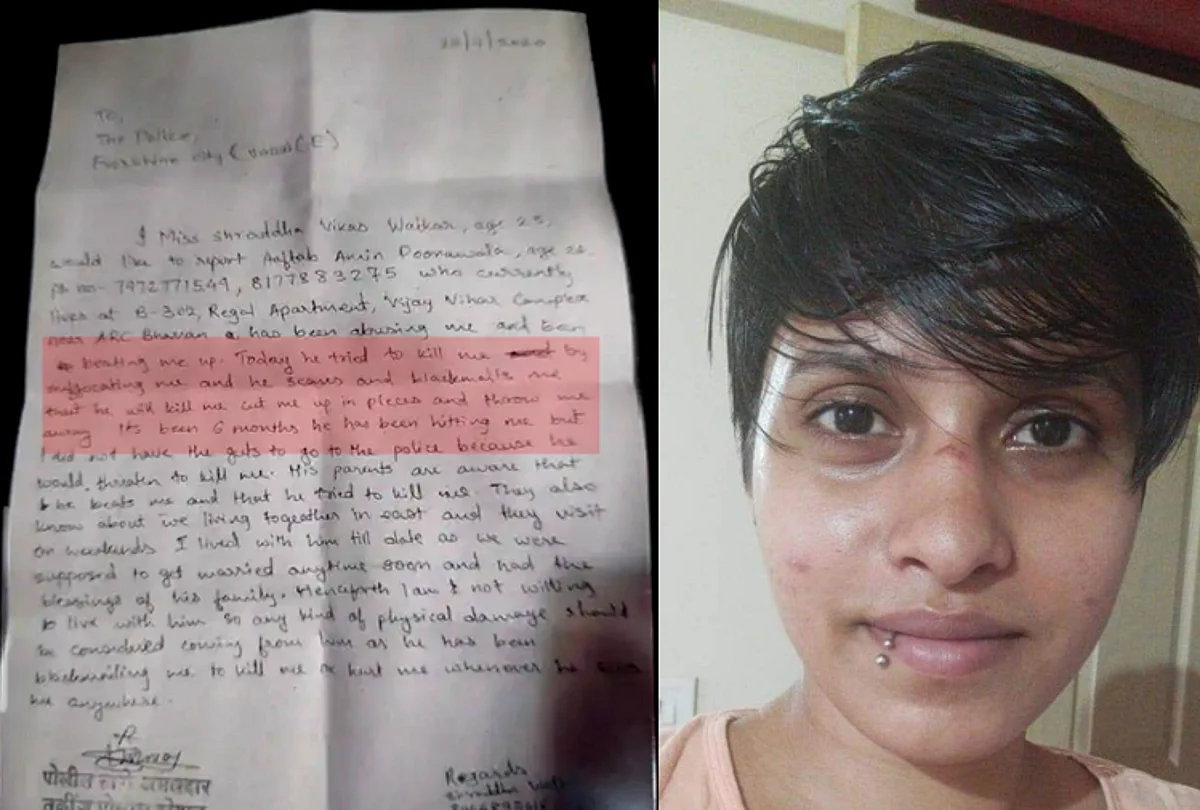 To,
The Police,
I Miss Shraddha Vikas Walkar, age 25,
would like to report Aaftab Amin Poonawala, age 26
ph no- 7972771549, 8177883275 who currently
lives at B-302, Regal Apartment, Vijay Vihar Complex
near ARC Bhavan has been abusing me and been
beating me up. Today he tried to kill me by
suffocating me and he scares and blackmails me
that he will kill me cut me up in pieces and throw me
away. Its been 6 months he has been hitting me but
I did not have the guts to go to the police because he
would threaten to kill me. His parents are aware that
he beats me and that he tried to kill me. They also
know about we living together in and they visit
on weekends I lived with him till date as we were
supposed to get married anytime soon and had the
blessings of his family. Henceforth I am not willing
to live with him so any kind of physical damage should
be considered coming from him as he has been
blackmailing me to kill me or hurt me whenever he
me anywhere.
Regards
पोलीस ठाणे अंमलदार